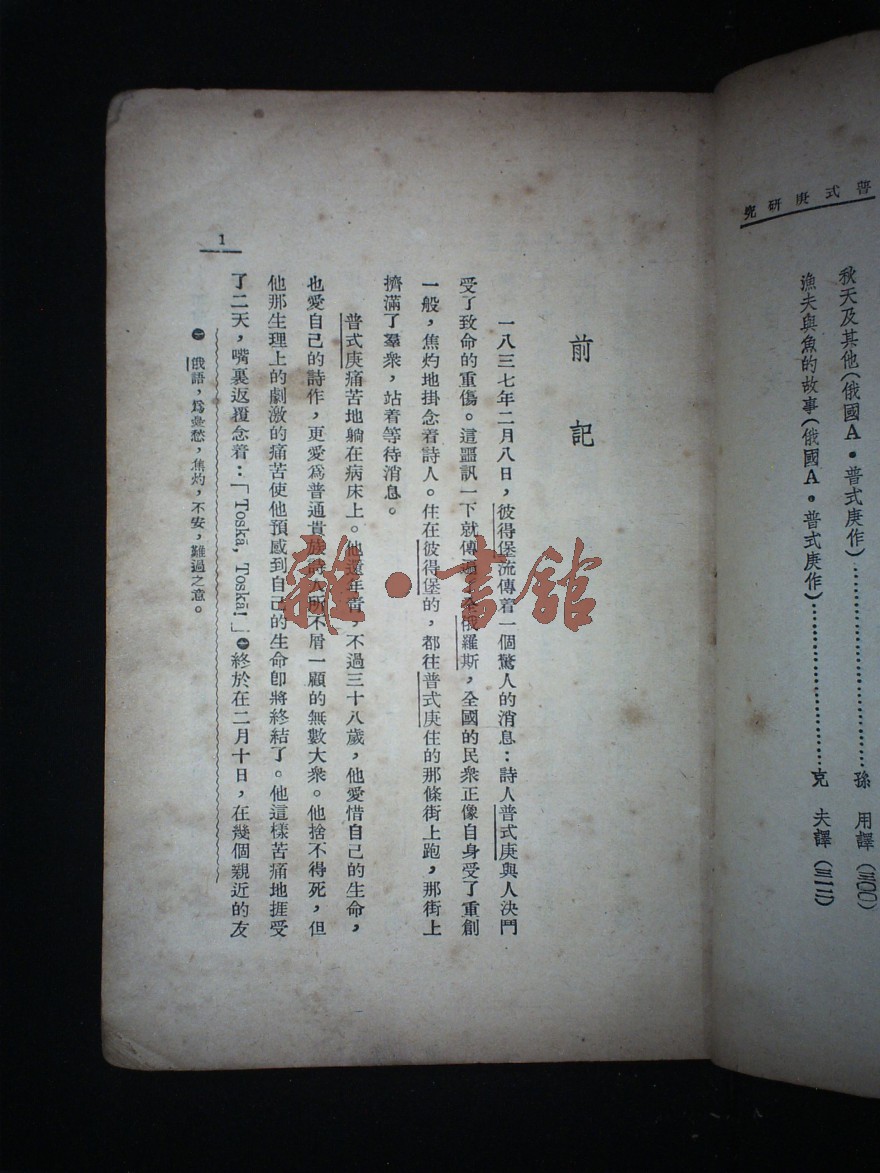 普式庚研究
秋天及其他(俄國A·普式庚作)……………………孫 用譯(三〇〇)
漁夫與魚的故事(俄國A·普式庚作)……………………克 夫譯(三一二)
前記
一八三七年二月八日,彼得堡流傳着一個驚人的消息:詩人普式庚與人決鬥
受了致命的重傷。這噩訊一下就傳遍了全俄羅斯,全國的民衆正像自身受了重創
一般,焦灼地掛念着詩人。住在彼得堡的,都往普式庚住的那條街上跑,那街上
擠滿了羣衆,站着等待消息。
普式庚痛苦地躺在病床上。他還年青,不過三十八歲,他愛惜自己的生命,
也愛自己的詩作,更愛爲普通貴族詩人所不屑一顧的無數大衆。他捨不得死,但
他那生理上的劇激的痛苦使他預感到自己的生命卽將終結了。他這樣苦痛地捱受
了二天,嘴裏返覆念着:「Toskā, Toskā!」㊀終於在二月十日,在幾個親近的友
㊀ 俄語,爲憂愁,焦灼,不安,難過之意。
1
雜·書館